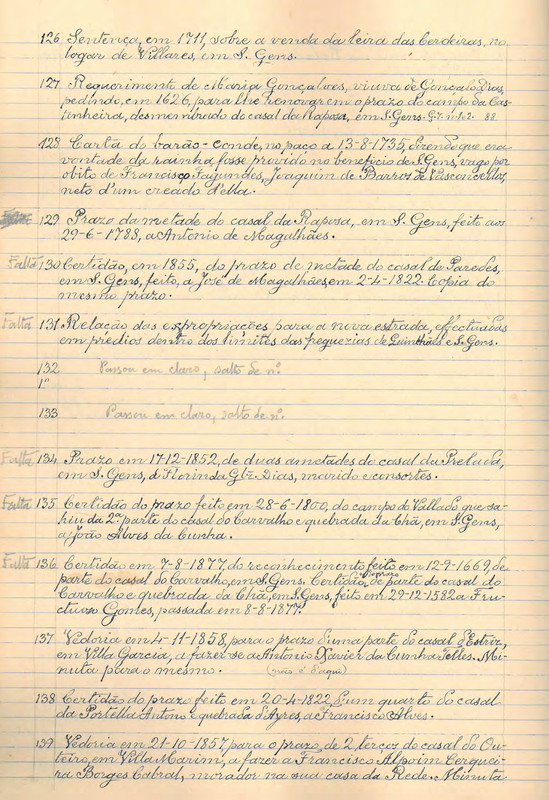 126 Sentença, em 1711, sobre a venda da leira das Cerdeiras, no
logar de Villares, em S. Gens.
127 Requerimento de Maria Gonçalves, viuva de Gonçalo Dias,
pedindo, em 1626, para lhe renovarem o prazo do campo da Cas-
tinheira, desmembrado do casal da Raposa, em S. Gens. 88
128 Carta do barão-conde, no paço a 13-8-1735, dizendo que era
vontade da rainha, fosse provido no beneficio de S. Gens, vago por
obito de Francisco Fagundes, Joaquim de Barros de Vasconcellos,
neto d'um creado d'ella.
129 Prazo da metade do casal da Raposa, em S. Gens, feito aos
29-6-1788, a Antonio de Magalhães.
Falta 130 Certidão, em 1855, do prazo de metade do casal de Paredes,
em S. Gens, feito, a José de Magalhães, em 2-4-1822. Copia do
mesmo prazo.
Falta 131 Relação das expropriações para a nova estrada, effectuadas
em predios dentro dos limites das freguezias de Quinchães e S. Gens.
132 Passou em claro, salto de nº.
1º
133 Passou em claro, salto de nº.
Falta 134 Prazo em 17-12-1852, de duas ametades do casal da Prelada,
em S. Gens, a Florinda Glz. Dias, marido e consortes.
Falta 135 Certidão do prazo feito em 28-6-1800, do campo do Vallado que sa-
hiu da 2ª parte do casal do Carvalho e quebrada da Chã, em S. Gens,
a João Alves da Cunha.
Falta 136 Certidão em 7-8-1877, do reconhecimento feito em 12-9-1669, de
parte do casal do Carvalho, em S. Gens. Certidão do prazo de parte do casal do
Carvalho e quebrada da Chã, em S. Gens, feito em 29-12-1582 a Fru-
ctuoso Gomes, passada em 8-8-1877.
137 Vedoria em 4-11-1858, para o prazo d'uma parte do casal d'Estrir,
em Villa Garcia, a fazer-se a Antonio Xavier da Cunha Telles. Mi-
nuta para o mesmo. (não é d'aqui)
138 Certidão do prazo feito em 20-4-1822, d'um quarto do casal
da Portella Antonio e quebrada d'Ayres, a Francisco Alves.
139 Vedoria em 21-10-1857, para o prazo, de 2 terços do casal do Ou-
teiro, em Villa Marim, a fazer a Francisco Alpoim Cerquei-
ra Borges Cabral, morador na sua casa da Rede. Minuta